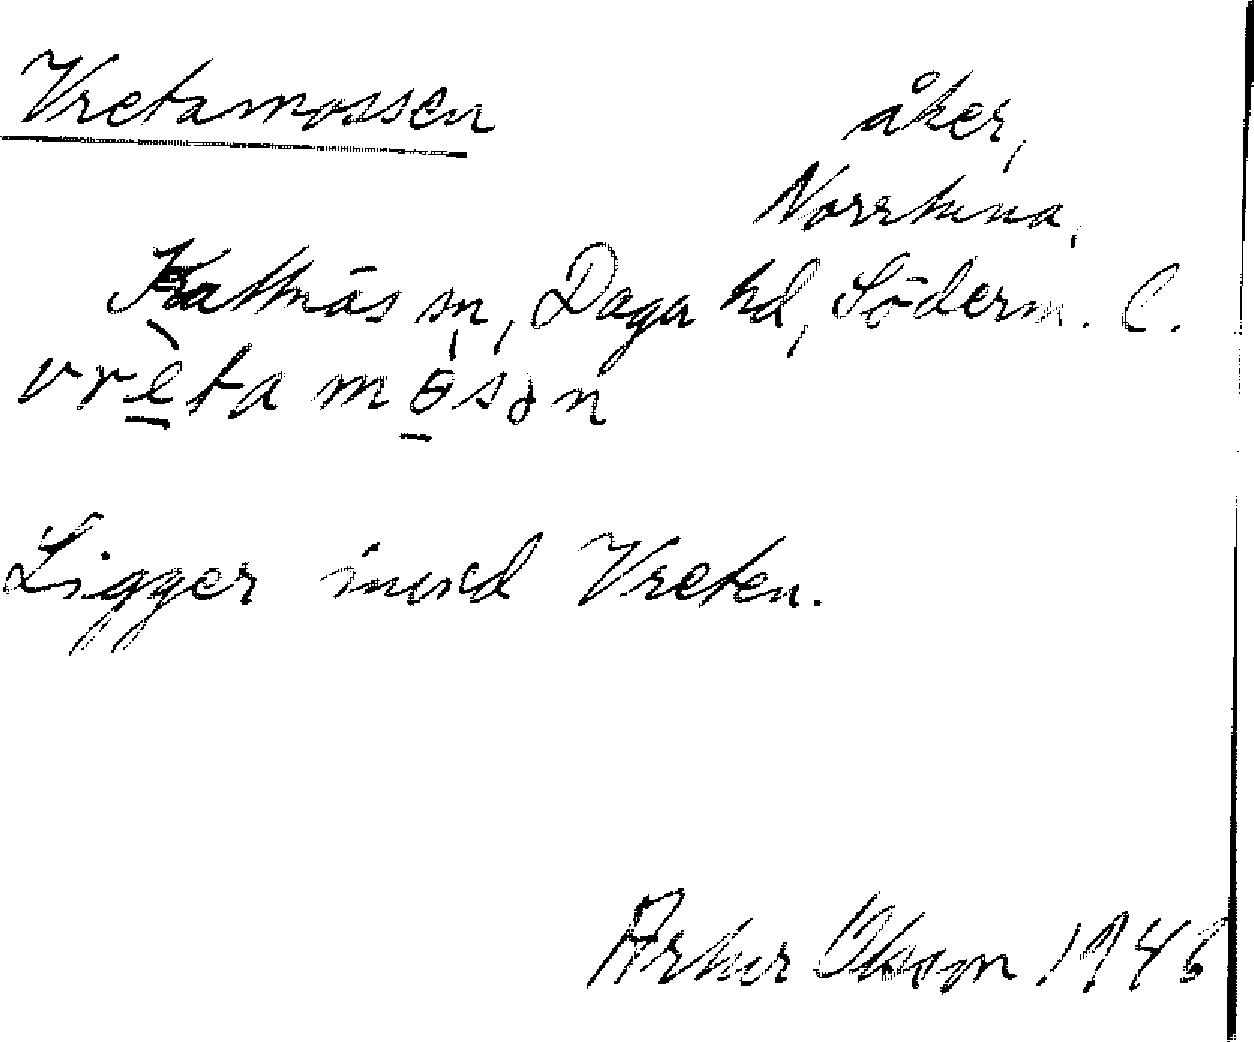 Vretamossen
åker,
Norrtuna,
Kattnäs sn, Daga hd, Söderm. l.
vrèta mòsən
Ligger invid Vreten.
Artur Olsson 1946